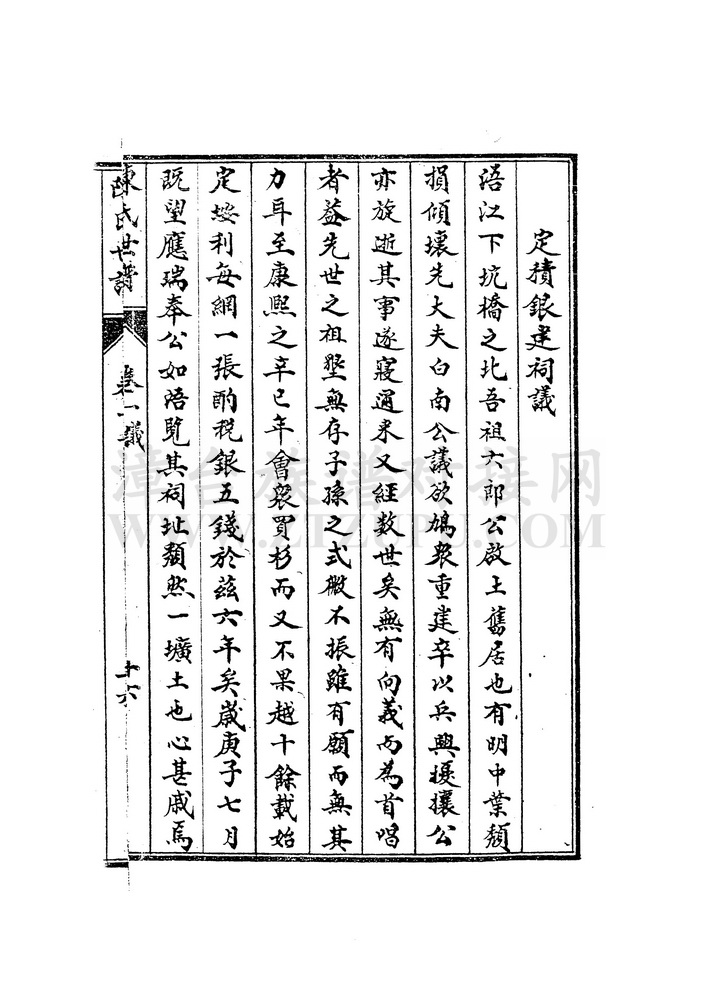 定積銀建祠議
浯江下坑橋之北吾祖六郎公啟土舊居也有明中葉頽
損傾壞先大夫白南公議欲鳩衆重建卒以兵興擾攘公
亦旋逝其事遂寢邇来又經数世矣無有向義而為首唱
者益先世之祖墾無存子孫之式微不振雖有願而無其
力耳至康熙之辛巳年會衆買杉而又不果越十餘載始
定垵利每網一張酌税銀五錢於茲六年矣歲庚子七月
既望應瑞奉公如浯覽其祠址頽然一壙土也心甚戚焉
陳氏世譜
卷一議
十六
漳台族譜对接网
WWW.ZTZUPU.COM